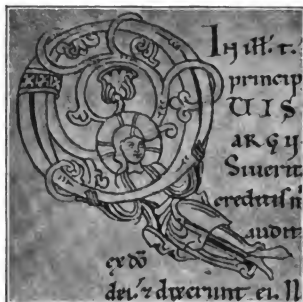 In ill. t.
princip
UIS
Siuerit
creditis n
audit
ex dō
dei. ⁊ dixerunt ei.